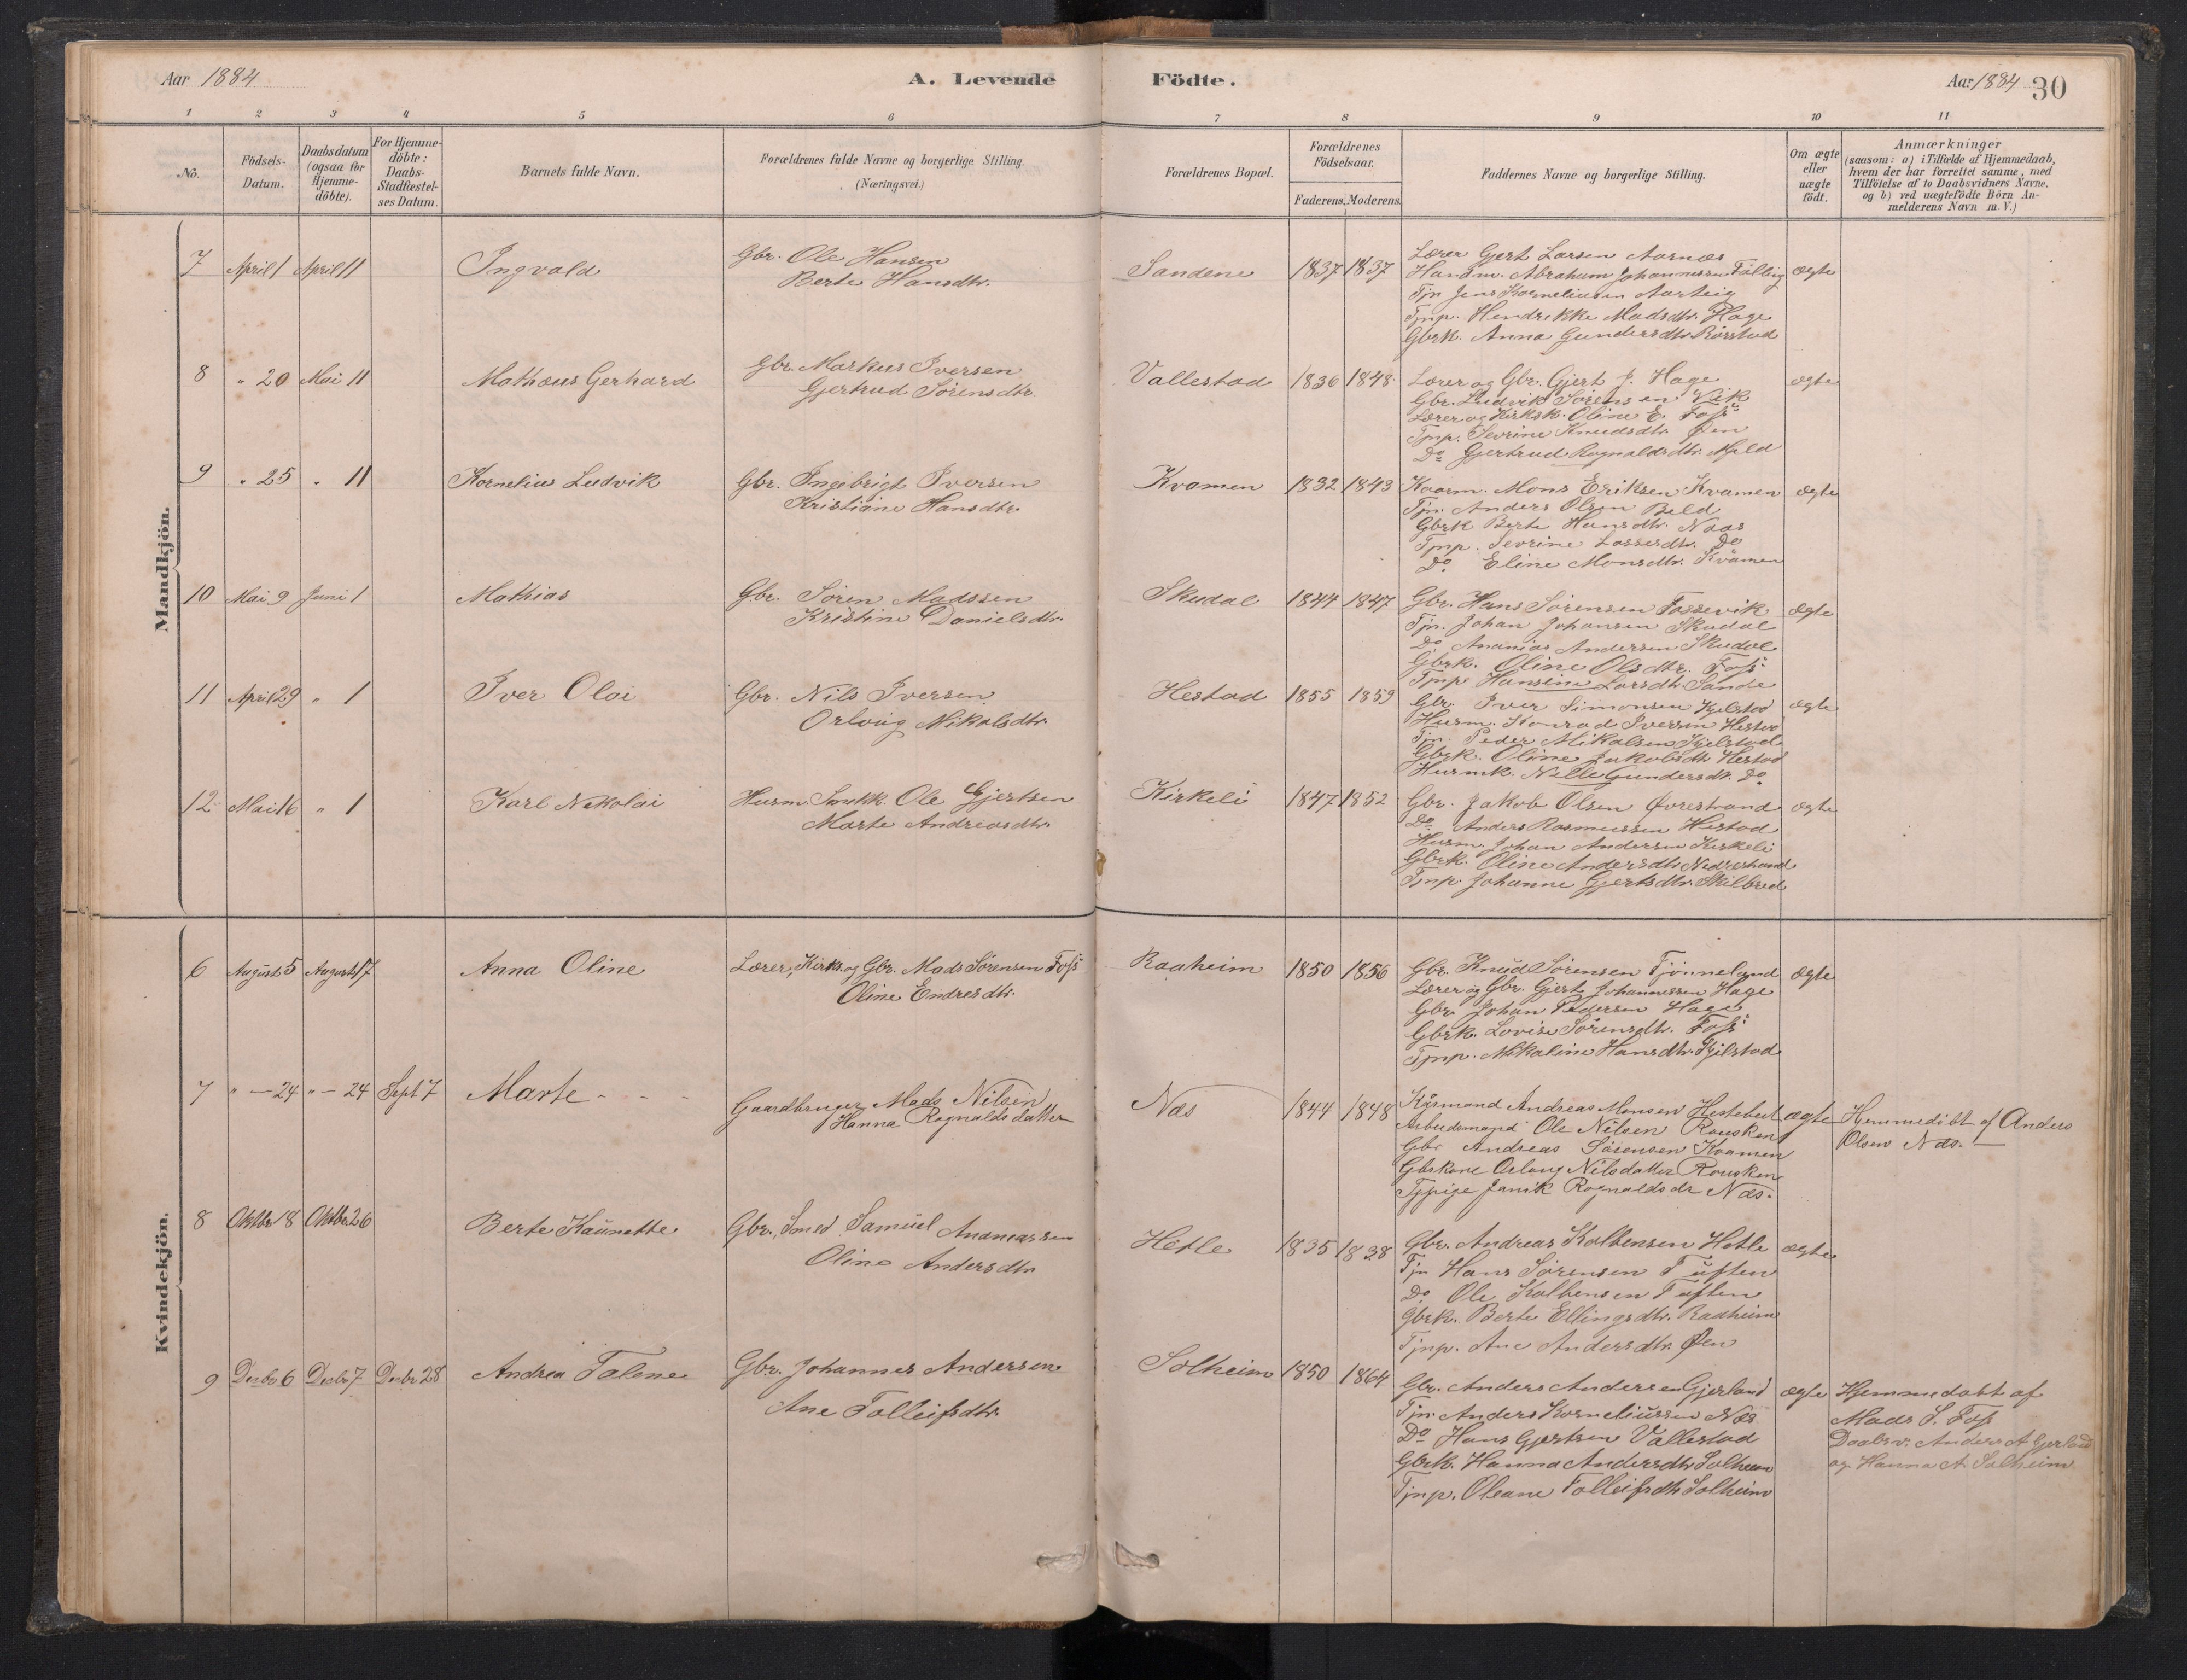 Aar 1884
A. Levende
Födte.
Aar 1884 30
1 2 3 4 5 6 7 8 9 10 11
No.
Födsels-
Datum.
Daabsdatum
(ogsaa for
Hjemme-
döbte).
For Hjemme-
döbte:
Daabs-
Stadfæstel-
ses Datum.
Barnets fulde Navn.
Forældrenes fulde Navne og borgerlige Stilling.
(Næringsvei.)
Forældrenes Bopæl.
Forældrenes
Födselsaar.
Faderens. Moderens.
Faddernes Navne og borgerlige Stilling.
Om ægte
eller
uægte
födt.
Anmærkninger
(saasom: a) i Tilfælde af Hjemmedaab,
hvem der har forrettet samme, med
Tilföielse af to Daabsvidners Navne,
og b) ved uægtefödte Börn An-
melderens Navn m. V.)
Mandkjön.
7 April 1 April 11 Ingvald
Gbr. Ole Hansen
Berte Hansdtr.
Sandene 1837 1837
Lærer Gert Larsen Aarnæs
Husm. Abraham Johannessen
Tjn Jens Korneliusen Aarteig
Tjnp. Hendrikke Madsdtr. Hage
Gbrk. Anna Gundersdtr.
ægte
8 " 20 Mai 11 Mathæus Gerhard
Gbr. Markus Iversen
Gjertrud Sørensdtr.
Vallestad 1836 1848
Lærer og Gbr. Gjert J. Hage
Gbr. Ludvik Sørensen Vik
Lærer og Kirksk. Oline E. Foss
Tjnp. Sevrine Knudsdtr. Øen
Do Gjertrud Rognaldsdtr. Mjeld
ægte
9 " 25 " 11 Kornelius Ludvik
Gbr. Ingebrigt Iversen
Kristiane Hansdtr.
Kvamen 1832 1843
Kaarm. Mons Eriksen Kvamen
Tjn. Anders Olsen Beld
Gbrk Berte Hansdtr. Naas
Tjnp. Sevrine Lassesdtr. Do
Do Eline Monsdtr. Kvamen
ægte
10 Mai 9 Juni 1 Mathias
Gbr. Søren Madssen
Kristine Danielsdtr.
Skudal 1844 1847
Gbr. Hans Sørensen Fossevik
Tjn. Johan Johansen Skudal
Do Ananias Andersen Skudal
Gbrk. Oline Olsdtr. Foss
Tjnp Hansine Larsdtr. Sande
ægte
11 April 29 " 1 Iver Olai
Gbr. Nils Iversen
Orlaug Nikolsdtr.
Hestad 1855 1859
Gbr. Iver Simonsen Kjelstad
Husm. Konrad Iversen Hestad
Tjn. Peder Mikalsen Kjelstad
Gbrk. Oline Jakobsdtr Hestad
Husmk. Nille Gundersdtr. Do
ægte
12 Mai 16 " 1 Karl Nikolai
Husm. Smkk. Ole Gjertsen
Marte Andreasdtr.
Kirkeli 1847 1852
Gbr. Jakob Olsen Øvrestrand
Do Anders Rasmussen Hestad
Husm. Johan Andersen Kirkeli
Gbrk. Oline Andersdtr. Nedrestrand
Tjnp. Johanne Gjertsdtr. Skilbred
ægte
Kvindekjön.
6 August 5 August 17 Anna Oline
Lærer, Kirks. og Gbr. Mads Sørensen Foss
Oline Endresdtr.
Raaheim 1850 1856
Gbr. Knud Sørensen Tjønneland
Lærer og Gbr. Gjert Johannessen Hage
Gbr. Johan Pedersen Hage
Gbrk. Lovise Sørensdtr. Foss
Tjnp. Nikoline Hansdtr. Kjelstad
ægte
7 " — 24 " — 24 Sept 7 Marte
Gaardbruger Mads Nilsen
Hanna Rognaldsdatter
Nas 1844 1848
Kårmand Andreas Monsen Hestebeit
Arbeidsmand Ole Nilsen Rousken
Gbr Andreas Sørensen Kvamen
Gbskone Orlaug Nilsdatter Rousken
Tjpige Janik Rognaldsdr Nas.
ægte
Hemmedöbt af Anders
Olsen Nas. —
8 Oktbr 18 Oktbr 26 Berte Kaunette
Gbr., Smed Samuel Ananiassen
Oline Andersdtr
Hetle 1835 1838
Gbr. Andreas Kolbensen Hetle
Tjn Hans Sørensen Tuften
Do Ole Kolbensen Tuften
Gbrk. Berte Ellingsdtr. Raaheim
Tjnp. Ane Andersdtr. Øen
ægte
9 Desbr 6 Desbr 7 Desbr 28 Andrea Talene
Gbr. Johannes Andersen
Ane Tolleifsdtr.
Solheim 1850 1864
Gbr. Anders Andersen Gjerland
Tjn. Anders Korneliussen Nas
Do Hans Gjertsen Vallestad
Gbrk. Hanna Andersdtr Solheim
Tjnp. Oleane Tolleifsdtr Solheim
ægte
Hjemmedøbt af
Mads S. Foss
Daabsv. Anders A Gjerland
og Hanna A. Solheim